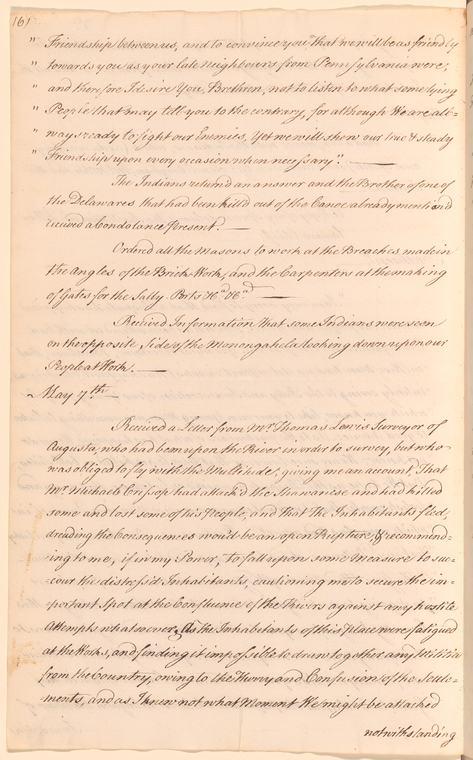 161
" Friendship between us, and to convince you that we will be as friendly
" towards you as your late Neighbours from Pennsylvania were;
" and therefore I desire You, Brethren, not to listen to what some lying
" People that may tell you to the contrary, for although We are all-
" ways ready to fight our Enemies, Yet we will shew our true & steady
" Friendship upon every occasion when necessary".
The Indians return'd an answer and the Brother of one of
the Delawares that had been kill'd out of the Canoe already mention'd
received a Condolance Present.
Orderd all the Masons to work at the Breaches made in
the Angles of the Brick Work, and the Carpenters at the making
of Gates for the Sally Ports &ca &ca
Received Information that some Indians were seen
on the opposite Side of the Monongahela looking down upon our
People at Work.
May 7th
Received a Letter from Mr. Thomas Lewis Surveyor of
Augusta, who had been upon the River in order to survey, but who
was obliged to fly with the Multitude, giving me an account, That
Mr. Michael Cresap had attack'd the Shawanese and had killed
some and lost some of his People, and that the Inhabitants fled,
dreading the Consequences would be an open Rupture, & recommend-
=ing to me, if in my Power, to fall upon some Measure to suc=
=cour the distress'd Inhabitants, cautioning me to secure the im=
=portant Spot at the Confluence of the Rivers against any hostile
Attempts whatsoever, As the Inhabitants of this Place were fatigued
at the Works, and finding it impossible to draw together any Militia
from the Country, owing to the Hurry and Confusion of the Settle=
=ments, and as I knew not what Moment We might be attacked
notwithstanding